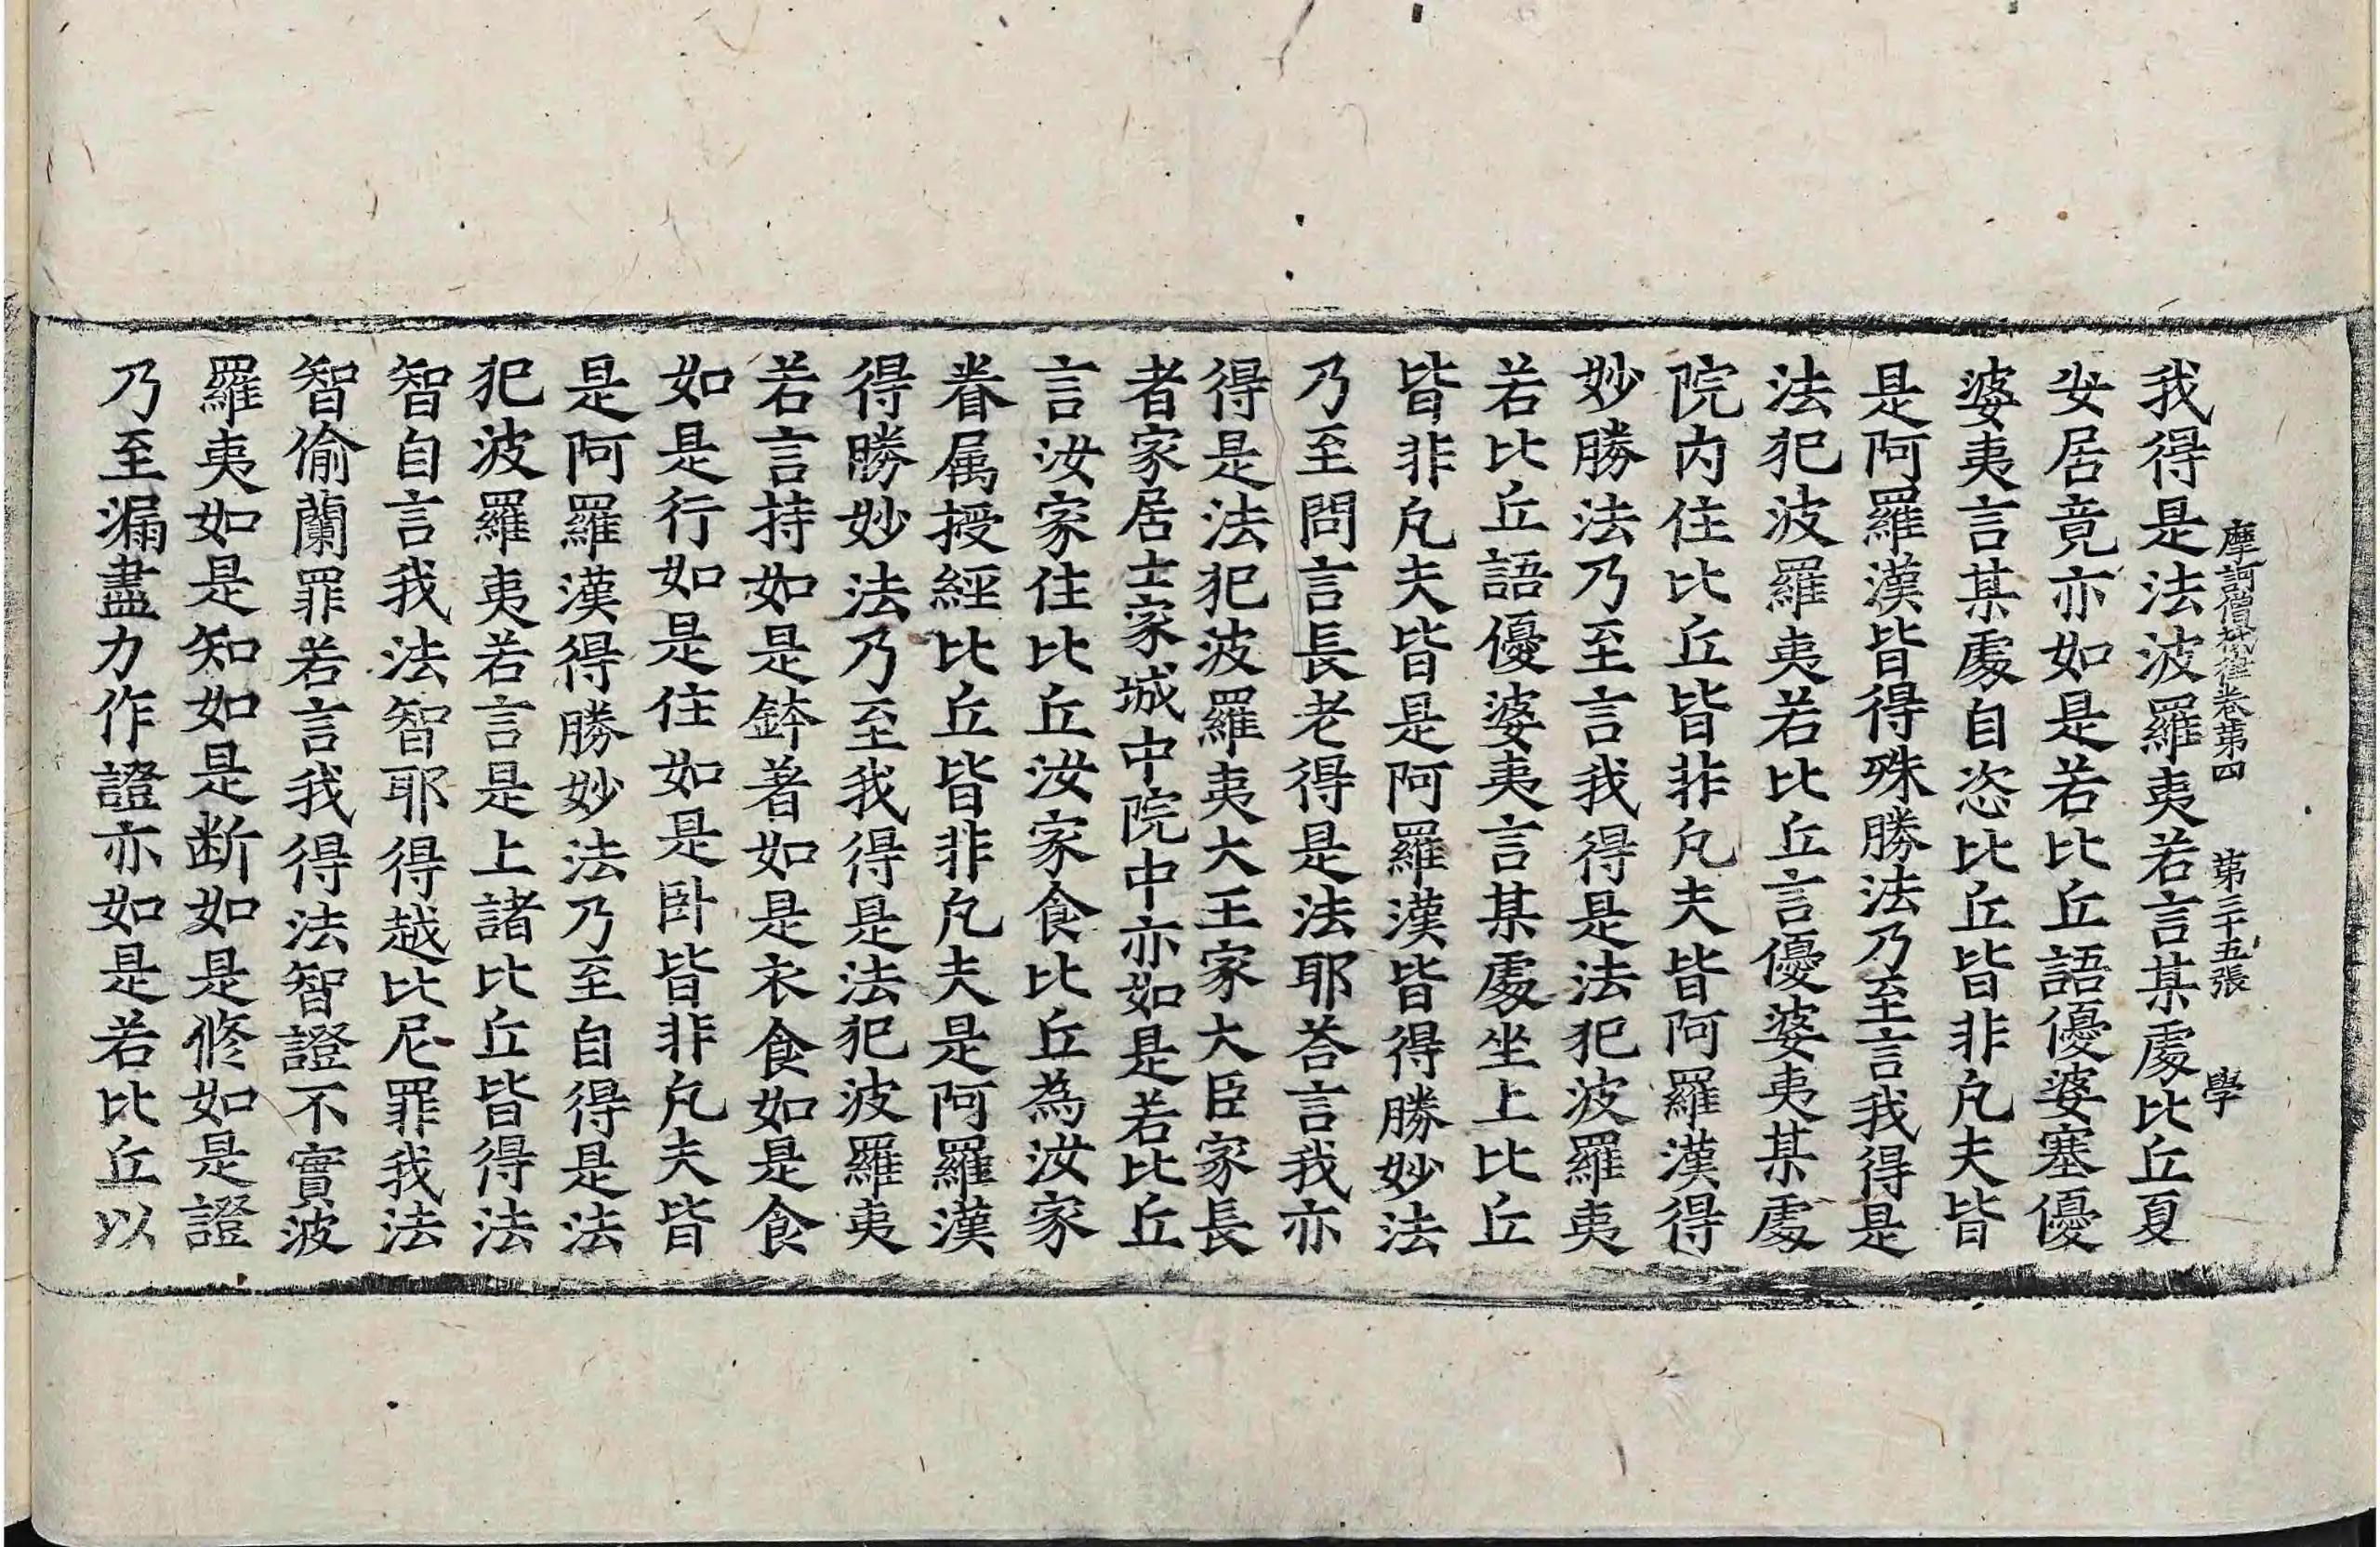 摩訶僧祇律卷第四 第三十五張 學
我得是法波羅夷若言某處比丘夏
安居竟亦如是若比丘語優婆塞優
婆夷言某處自恣比丘皆非凡夫皆
是阿羅漢皆得殊勝法乃至言我得是
法犯波羅夷若比丘言優婆夷某處
院內住比丘皆非凡夫皆阿羅漢得
妙勝法乃至言我得是法犯波羅夷
若比丘語優婆夷言某處坐上比丘
皆非凡夫皆是阿羅漢皆得勝妙法
乃至問言長老得是法耶荅言我亦
得是法犯波羅夷大王家大臣家長
者家居士家城中院中亦如是若比丘
言汝家住比丘汝家食比丘為汝家
眷属授經比丘皆非凡夫是阿羅漢
得勝妙法乃至我得是法犯波羅夷
若言持如是鉢著如是衣食如是食
如是行如是住如是卧皆非凡夫皆
是阿羅漢得勝妙法乃至自得是法
犯波羅夷若言是上諸比丘皆得法
智自言我法智耶得越比尼罪我法
智偷蘭罪若言我得法智證不實波
羅夷如是知如是断如是修如是證
乃至漏盡力作證亦如是若比丘以